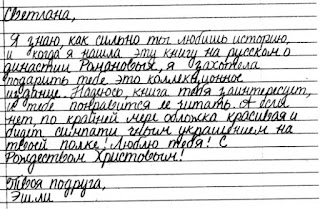 Светлана,
Я знаю, как сильно ты любишь историю,
и когда я нашла эту книгу на русском о
династии Романовых, я захотела
подарить тебе это коллекционное
издание. Надеюсь, книга тебя заинтересует,
и тебе понравится ее читать. А если
нет, по крайней мере обложка красивая и
будет симпатичным украшением на
твоей полке! Люблю тебя! С
Рождеством Христовым!
Твоя подруга,
Эшли